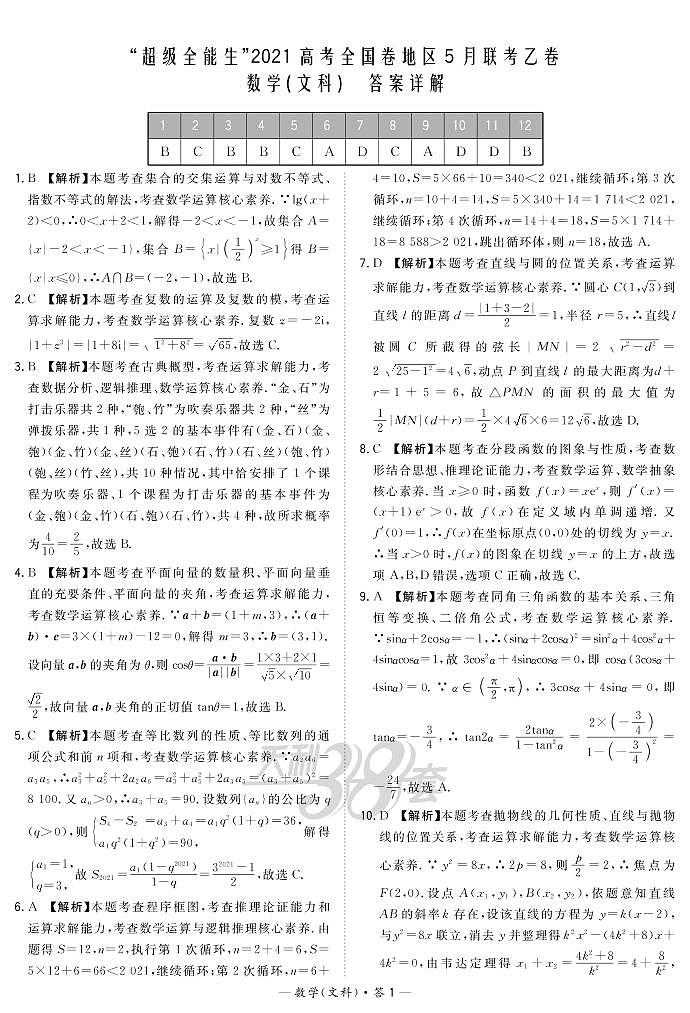 “超级全能生”2021高考全国卷地区5月联考乙卷
数学(文科) 答案详解
1 2 3 4 5 6 7 8 9 10 11 12
B C B B C A D C A D D B
1. B 【解析】本题考查集合的交集运算与对数不等式、
指数不等式的解法,考查数学运算核心素养.∵lg(x+
2)<0,∴0<x+2<1,解得-2<x<-1,故集合A=
{x|-2<x<-1},集合B={x|(1/2)^x≥1}得B=
{x|x≤0},∴A∩B=(-2,-1),故选B.
2. C 【解析】本题考查复数的运算及复数的模,考查运
算求解能力,考查数学运算核心素养.复数z=-2i,
|1+z³|=|1+8i|=√(1²+8²)=√65,故选C.
3. B 【解析】本题考查古典概型,考查运算求解能力,考
查数据分析、逻辑推理、数学运算核心素养.“金、石”为
打击乐器共2种,“匏、竹”为吹奏乐器共2种,“丝”为
弹拨乐器,共1种,5选2的基本事件有(金、石)(金、
匏)(金、竹)(金、丝)(石、匏)(石、竹)(石、丝)(匏、竹)
(匏、丝)(竹、丝),共10种情况,其中恰安排了1个课
程为吹奏乐器、1个课程为打击乐器的基本事件为
(金、匏)(金、竹)(石、匏)(石、竹),共4种,故所求概率
为4/10=2/5,故选B.
4. B 【解析】本题考查平面向量的数量积、平面向量垂
直的充要条件、平面向量的夹角,考查运算求解能力,
考查数学运算核心素养.∵a+b=(1+m,3),∴(a+
b)·c=3×(1+m)-12=0,解得m=3,∴b=(3,1).
设向量a,b的夹角为θ,则cosθ=a·b/|a||b|=(1×3+2×1)/(√5×√10)=
√2/2,故向量a,b夹角的正切值tanθ=1,故选B.
5. C 【解析】本题考查等比数列的性质、等比数列的通
项公式和前n项和,考查数学运算核心素养.∵a₂a₆=
a₃a₅,∴a₃²+a₅²+2a₂a₆=a₃²+a₅²+2a₃a₅=(a₃+a₅)²=
8 100.又aₙ>0,∴a₃+a₅=90.设数列{aₙ}的公比为q
(q>0),则{S₄-S₂=a₃+a₄=a₁q²(1+q)=36, a₁q²(1+q²)=90, 解得
{a₁=1, q=3, 故S₂₀₂₁=a₁(1-q²⁰²¹)/(1-q)=(3²⁰²¹-1)/2,故选C.
6. A 【解析】本题考查程序框图,考查推理论证能力和
运算求解能力,考查数学运算与逻辑推理核心素养.由
题得S=12,n=2,执行第1次循环,n=2+4=6,S=
5×12+6=66<2 021,继续循环;第2次循环,n=6+
4=10,S=5×66+10=340<2 021,继续循环;第3次
循环,n=10+4=14,S=5×340+14=1 714<2 021,
继续循环;第4次循环,n=14+4=18,S=5×1 714+
18=8 588>2 021,跳出循环体,则n=18,故选A.
7. D 【解析】本题考查直线与圆的位置关系,考查运算
求解能力,考查数学运算核心素养.∵圆心C(1,√3)到
直线l的距离d=|1+3-2|/2=1,半径r=5,∴直线l
被圆C所截得的弦长|MN|=2√(r²-d²)=
2√(25-1²)=4√6,动点P到直线l的最大距离为d+
r=1+5=6,故△PMN的面积的最大值为
1/2|MN|(d+r)=1/2×4√6×6=12√6,故选D.
8. C 【解析】本题考查分段函数的图象与性质,考查数
形结合思想、推理论证能力,考查数学运算、数学抽象
核心素养.当x≥0时,函数f(x)=xeˣ,则f′(x)=
(x+1)eˣ>0,故f(x)在定义域内单调递增.又
f′(0)=1,∴f(x)在坐标原点(0,0)处的切线为y=x.
∴当x>0时,f(x)的图象在切线y=x的上方,故选
项A,B,D错误,选项C正确,故选C.
9. A 【解析】本题考查同角三角函数的基本关系、三角
恒等变换、二倍角公式,考查数学运算核心素养.
∵sinα+2cosα=-1,∴(sinα+2cosα)²=sin²α+4cos²α+
4sinαcosα=1,故3cos²α+4sinαcosα=0,即cosα(3cosα+
4sinα)=0.∵α∈(π/2,π),∴3cosα+4sinα=0,即
tanα=-3/4,∴tan2α=2tanα/(1-tan²α)=2×(-3/4)/(1-(-3/4)²)=
-24/7,故选A.
10. D 【解析】本题考查抛物线的几何性质、直线与抛物
线的位置关系,考查运算求解能力,考查数学运算核
心素养.∵y²=8x,∴2p=8,则p/2=2,∴焦点为
F(2,0).设点A(x₁,y₁),B(x₂,y₂),依题意知直线
AB的斜率k存在,设该直线的方程为y=k(x-2),
与y²=8x联立,消去y并整理得k²x²-(4k²+8)x+
4k²=0,由韦达定理得x₁+x₂=(4k²+8)/k²=4+8/k²,
—数学(文科)·答1—